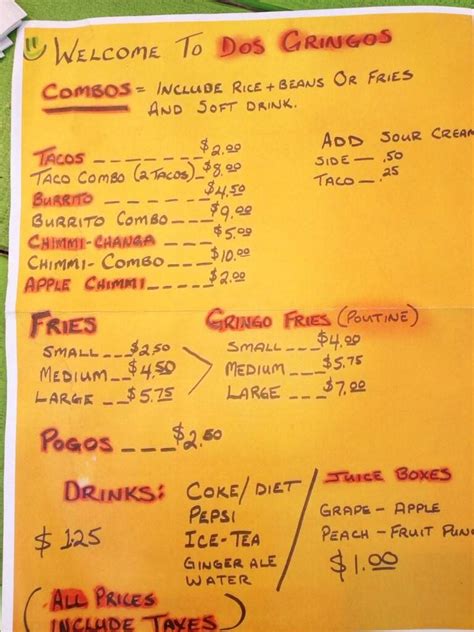 WELCOME TO DOS GRINGOS
COMBOS = INCLUDE RICE + BEANS OR FRIES
AND SOFT DRINK.
TACOS $2.00
TACO COMBO (2 TACOS) $8.00
BURRITO $4.50
BURRITO COMBO $9.00
CHIMMI-CHANGA $5.00
CHIMMI-COMBO $10.00
APPLE CHIMMI $2.00
ADD SOUR CREAM
SIDE — .50
TACO — .25
FRIES
SMALL $2.50
MEDIUM $4.50
LARGE $5.75
GRINGO FRIES (POUTINE)
SMALL $4.00
MEDIUM $5.75
LARGE $7.00
POGOS $2.50
DRINKS:
$1.25
COKE / DIET
PEPSI
ICE-TEA
GINGER ALE
WATER
JUICE BOXES
GRAPE - APPLE
PEACH - FRUIT PUN
$1.00
(ALL PRICES
INCLUDE TAXES)